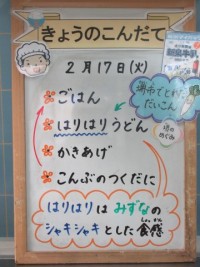 きょうのこんだて
2月17日(火)
ごはん
はりはりうどん
かきあげ
こんぶのつくだに
だいこん
はりはりは みずなの
シャキシャキとした食感